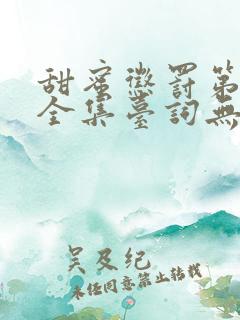 甜蜜懲罰第
全集臺詞無
吴及纪
未经同意禁止转载